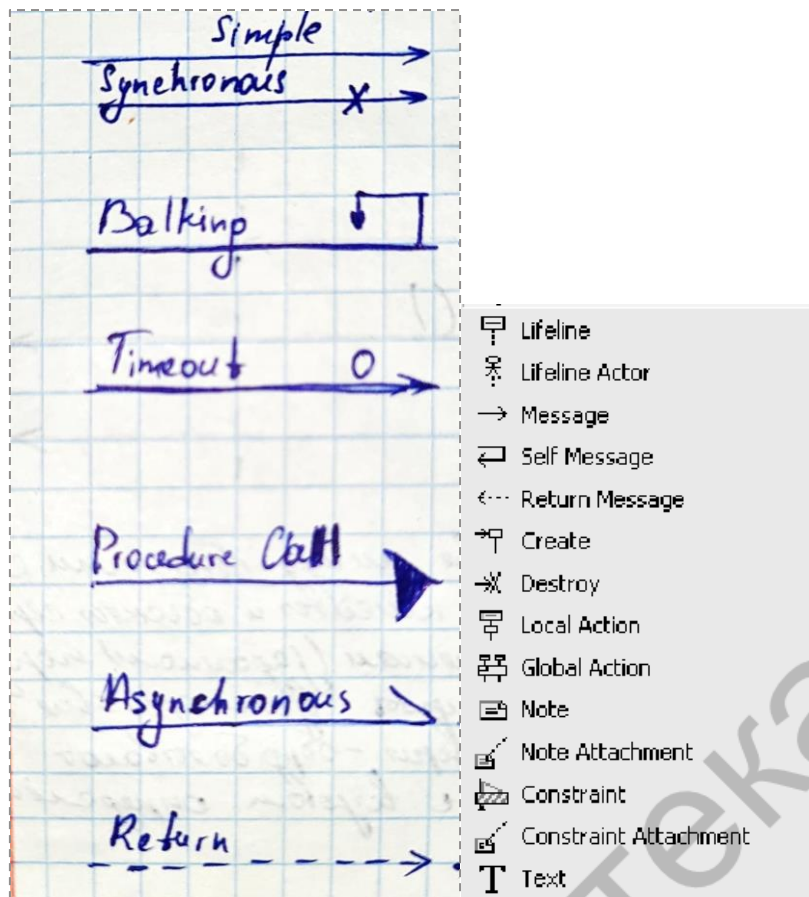 Simple
Synchronous
Balking
Timeout
Procedure Call
Asynchronous
Return
Lifeline
Lifeline Actor
Message
Self Message
Return Message
Create
Destroy
Local Action
Global Action
Note
Note Attachment
Constraint
Constraint Attachment
T Text
тека